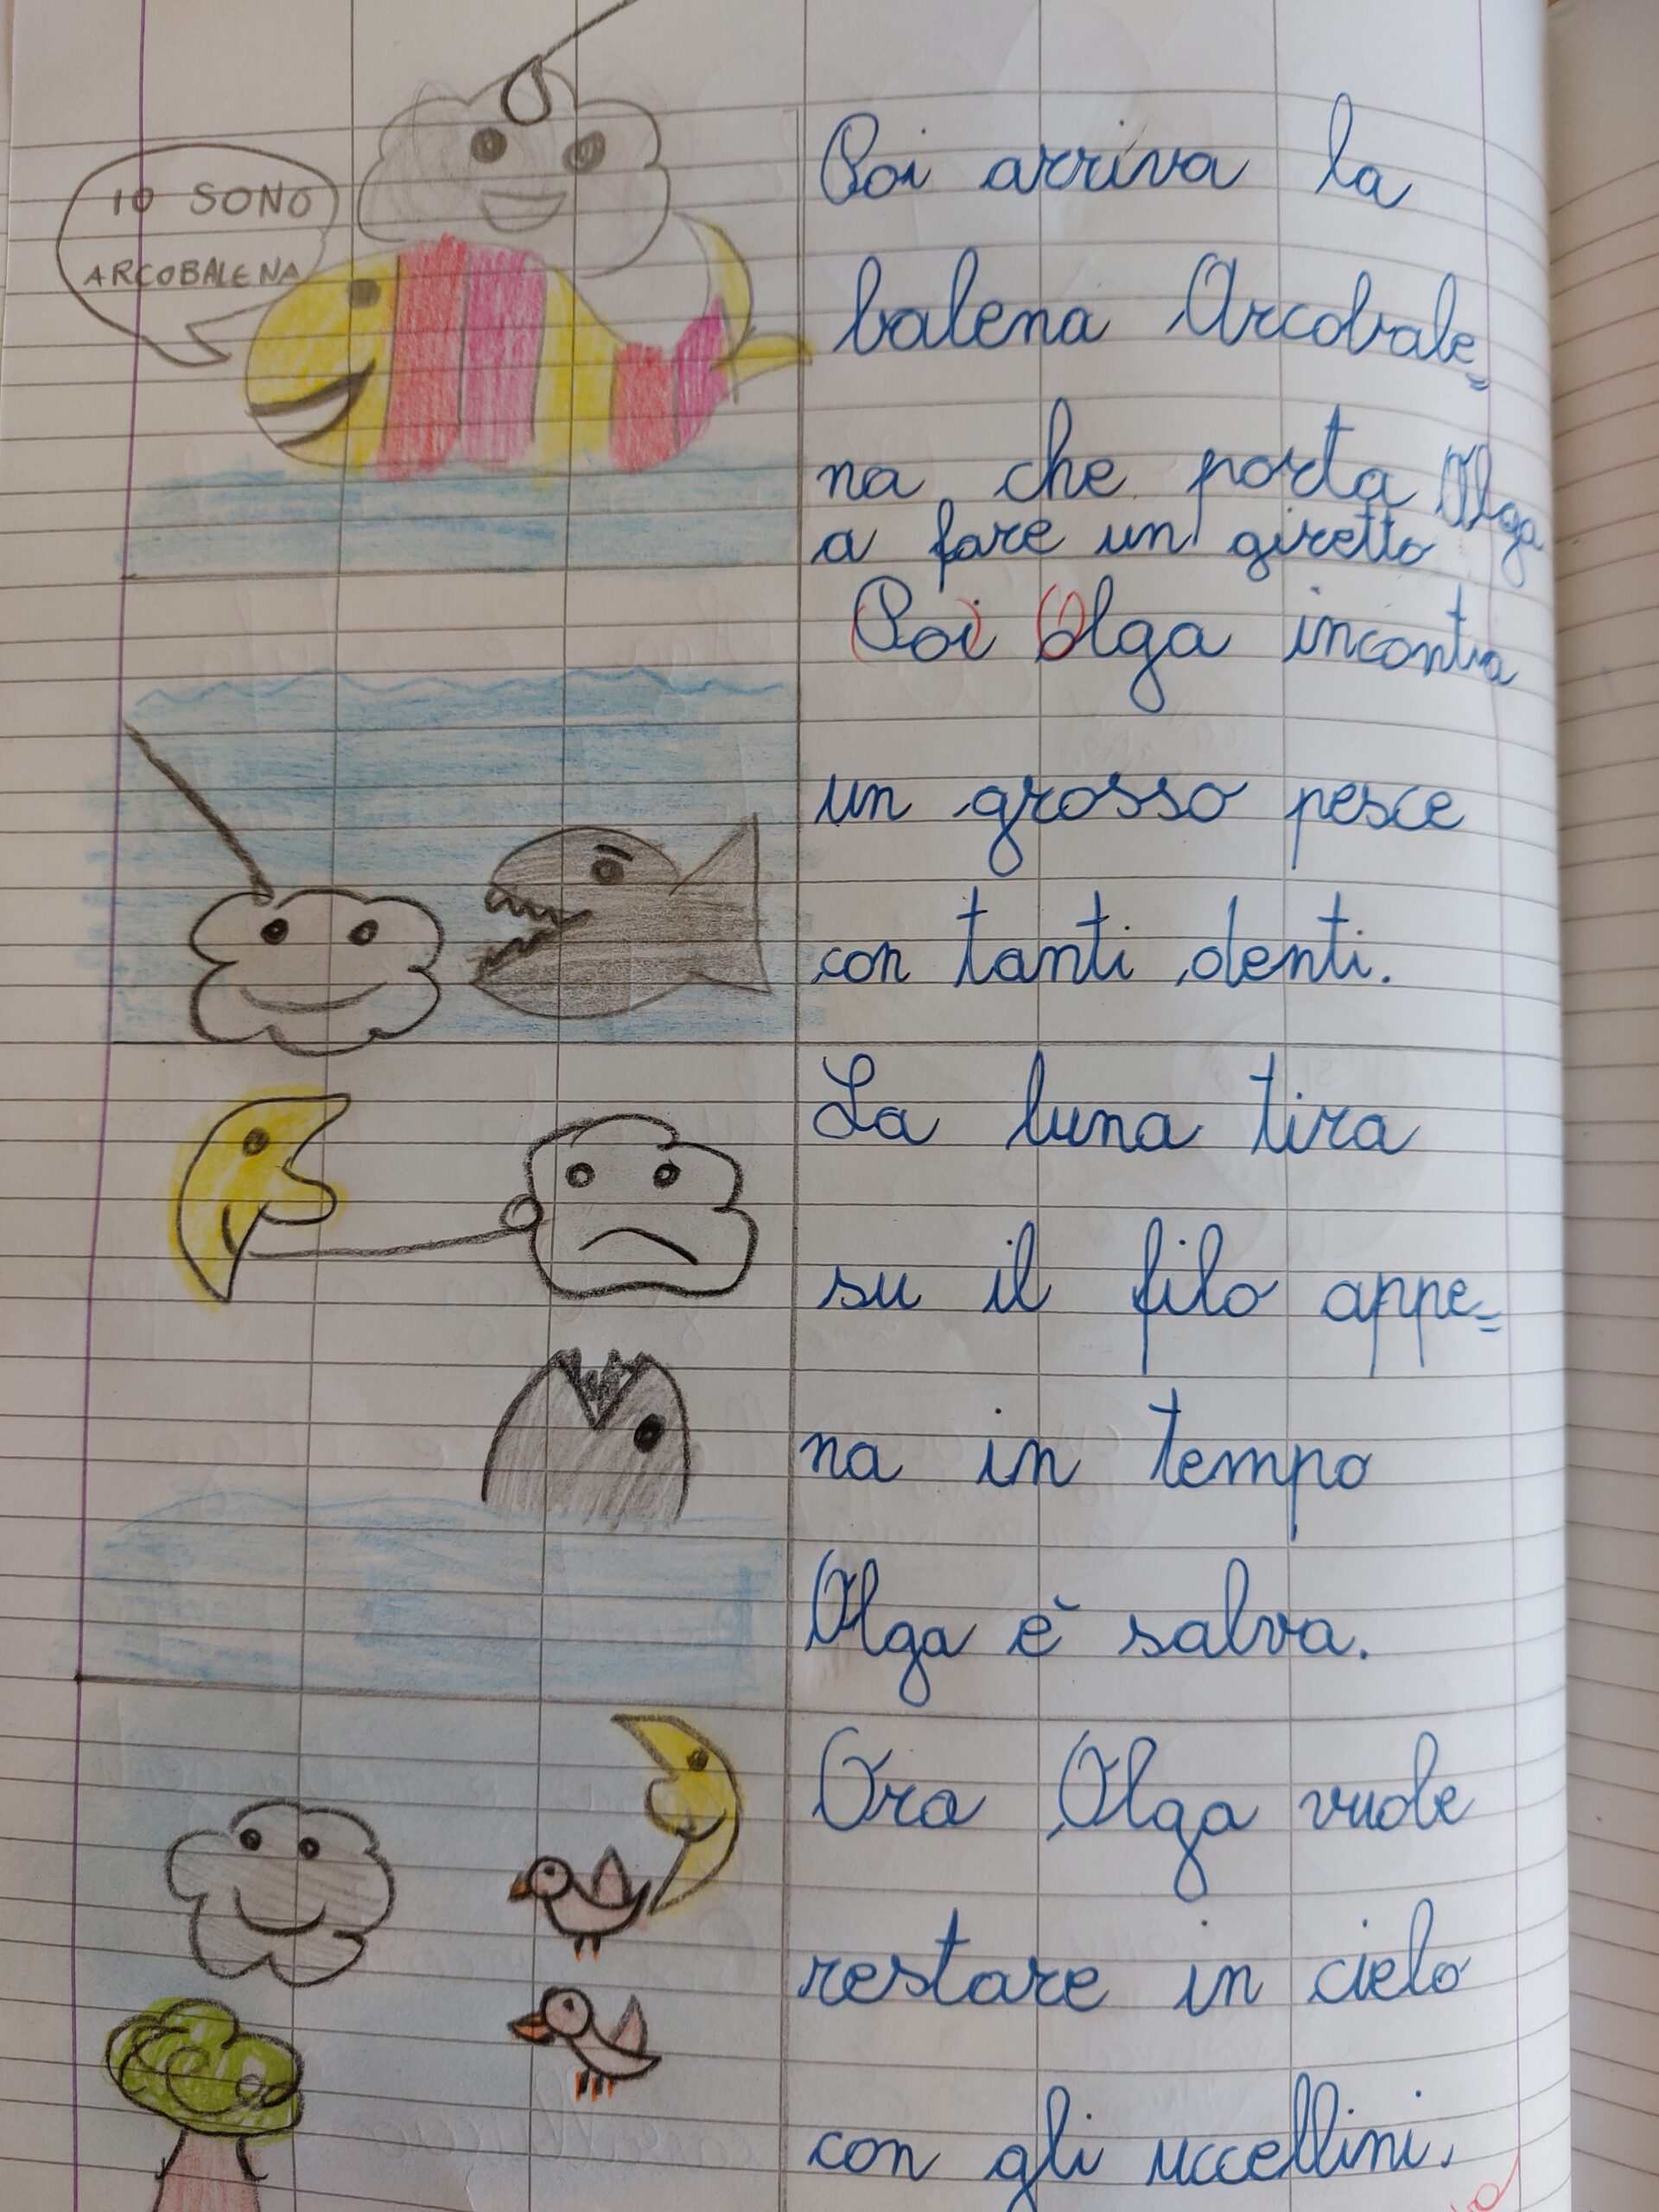 IO SONO
ARCOBALENA
Poi arriva la
balena Arcobale=
na che porta Olga
a fare un giretto
Poi Olga incontra
un grosso pesce
con tanti denti.
La luna tira
su il filo appe=
na in tempo
Olga è salva.
Ora Olga vuole
restare in cielo
con gli uccellini.